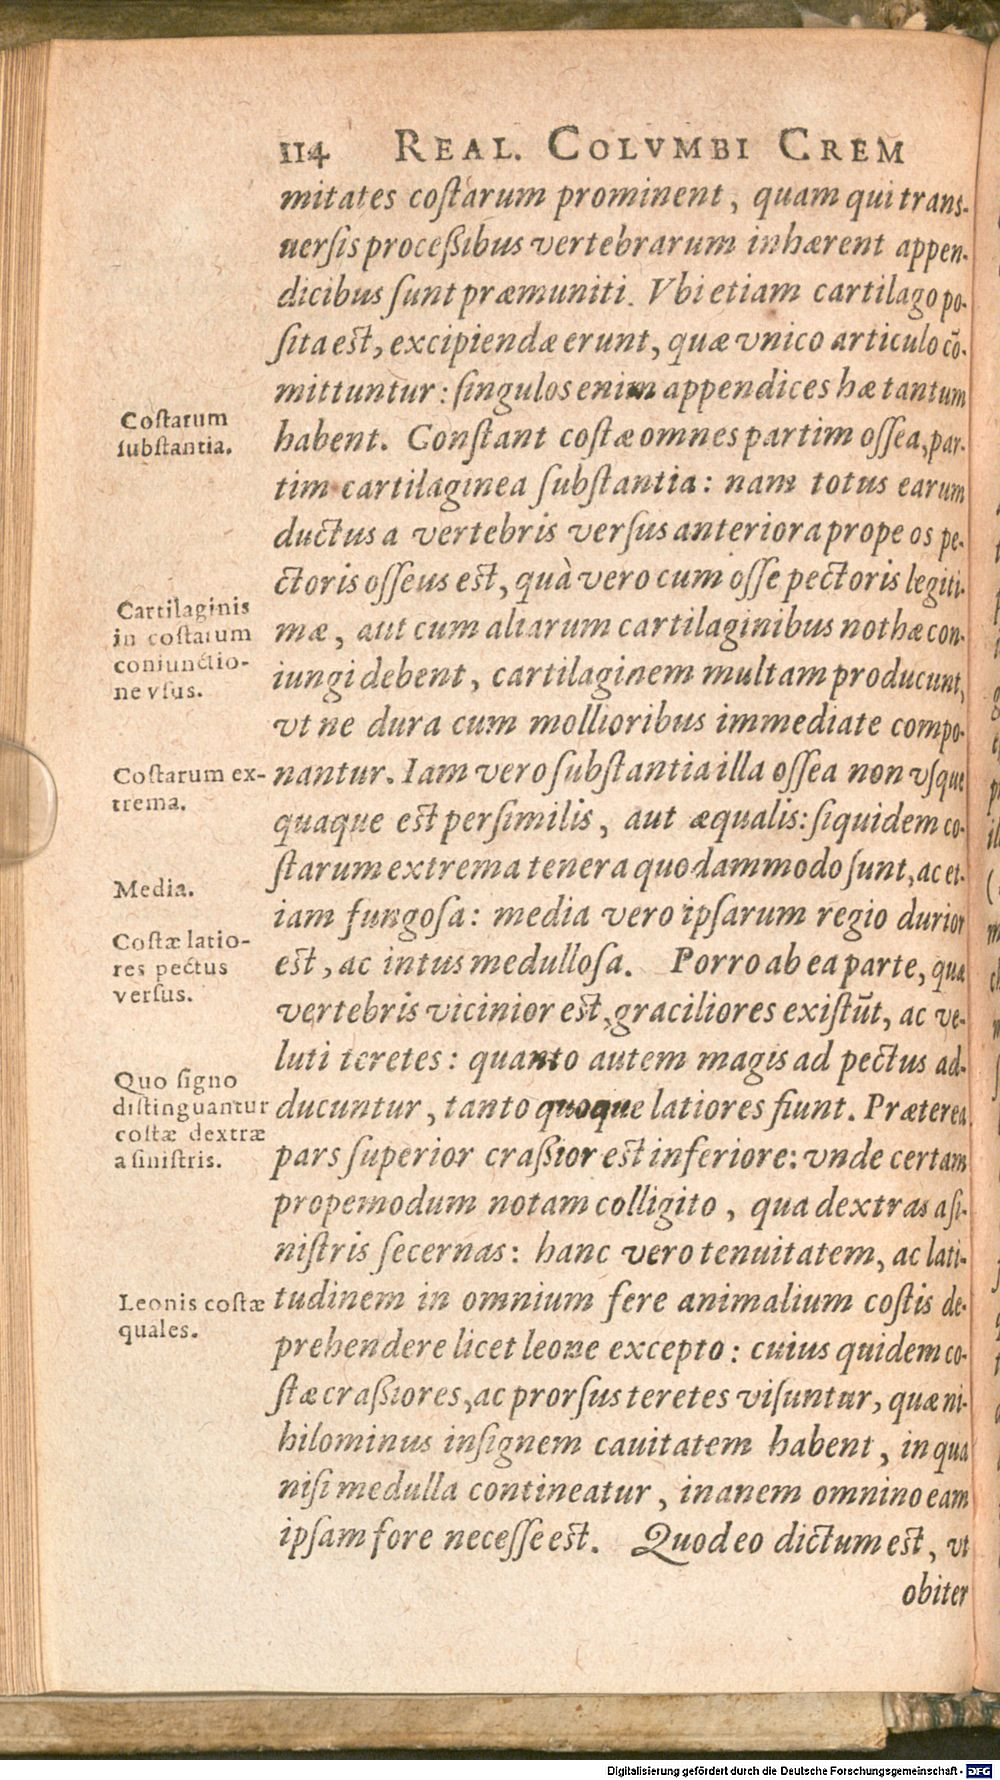 114 REAL. COLVMBI CREM
mitates coſtarum prominent, quam qui tranſ-
uerſis proceßibus vertebrarum inhærent appen-
dicibus ſunt præmuniti. Vbi etiam cartilago po-
ſita est, excipiendæ erunt, quæ vnico articulo cõ-
mittuntur: ſingulos enim appendices hæ tantum
habent. Conſtant coſtæ omnes partim oſſea, par-
tim cartilaginea ſubſtantia: nam totus earum
ductus a vertebris verſus anteriora prope os pe-
ctoris oſſeus est, quà vero cum oſſe pectoris legiti-
mæ, aut cum aliarum cartilaginibus nothæ con-
iungi debent, cartilaginem multam producunt,
vt ne dura cum mollioribus immediate compo-
nantur. Iam vero ſubſtantia illa oſſea non vſque
quaque est perſimilis, aut æqualis: ſiquidem co-
ſtarum extrema tenera quodammodo ſunt, ac et-
iam fungoſa: media vero ipſarum regio durior
est, ac intus medulloſa. Porro ab ea parte, qua
vertebris vicinior est, graciliores exiſtũt, ac ve-
luti teretes: quanto autem magis ad pectus ad-
ducuntur, tanto quoque latiores fiunt. Præterea
pars ſuperior craßior est inferiore: vnde certam
propemodum notam colligito, qua dextras a ſi-
niſtris ſecernas: hanc vero tenuitatem, ac lati-
tudinem in omnium fere animalium coſtis de-
prehendere licet leone excepto: cuius quidem co-
ſtæ craßiores, ac prorſus teretes viſuntur, quæ ni-
hilominus inſignem cauitatem habent, in qua
niſi medulla contineatur, inanem omnino eam
ipſam fore neceſſe est. Quod eo dictum est, vt
obiter
Coſtarum
ſubſtantia.
Cartilaginis
in coſtarum
coniunctio-
ne vſus.
Coſtarum ex-
trema.
Media.
Coſtæ latio-
res pectus
verſus.
Quo ſigno
diſtinguantur
coſtæ dextræ
a ſiniſtris.
Leonis coſtæ
quales.
Digitalisierung gefördert durch die Deutsche Forschungsgemeinschaft - DFG